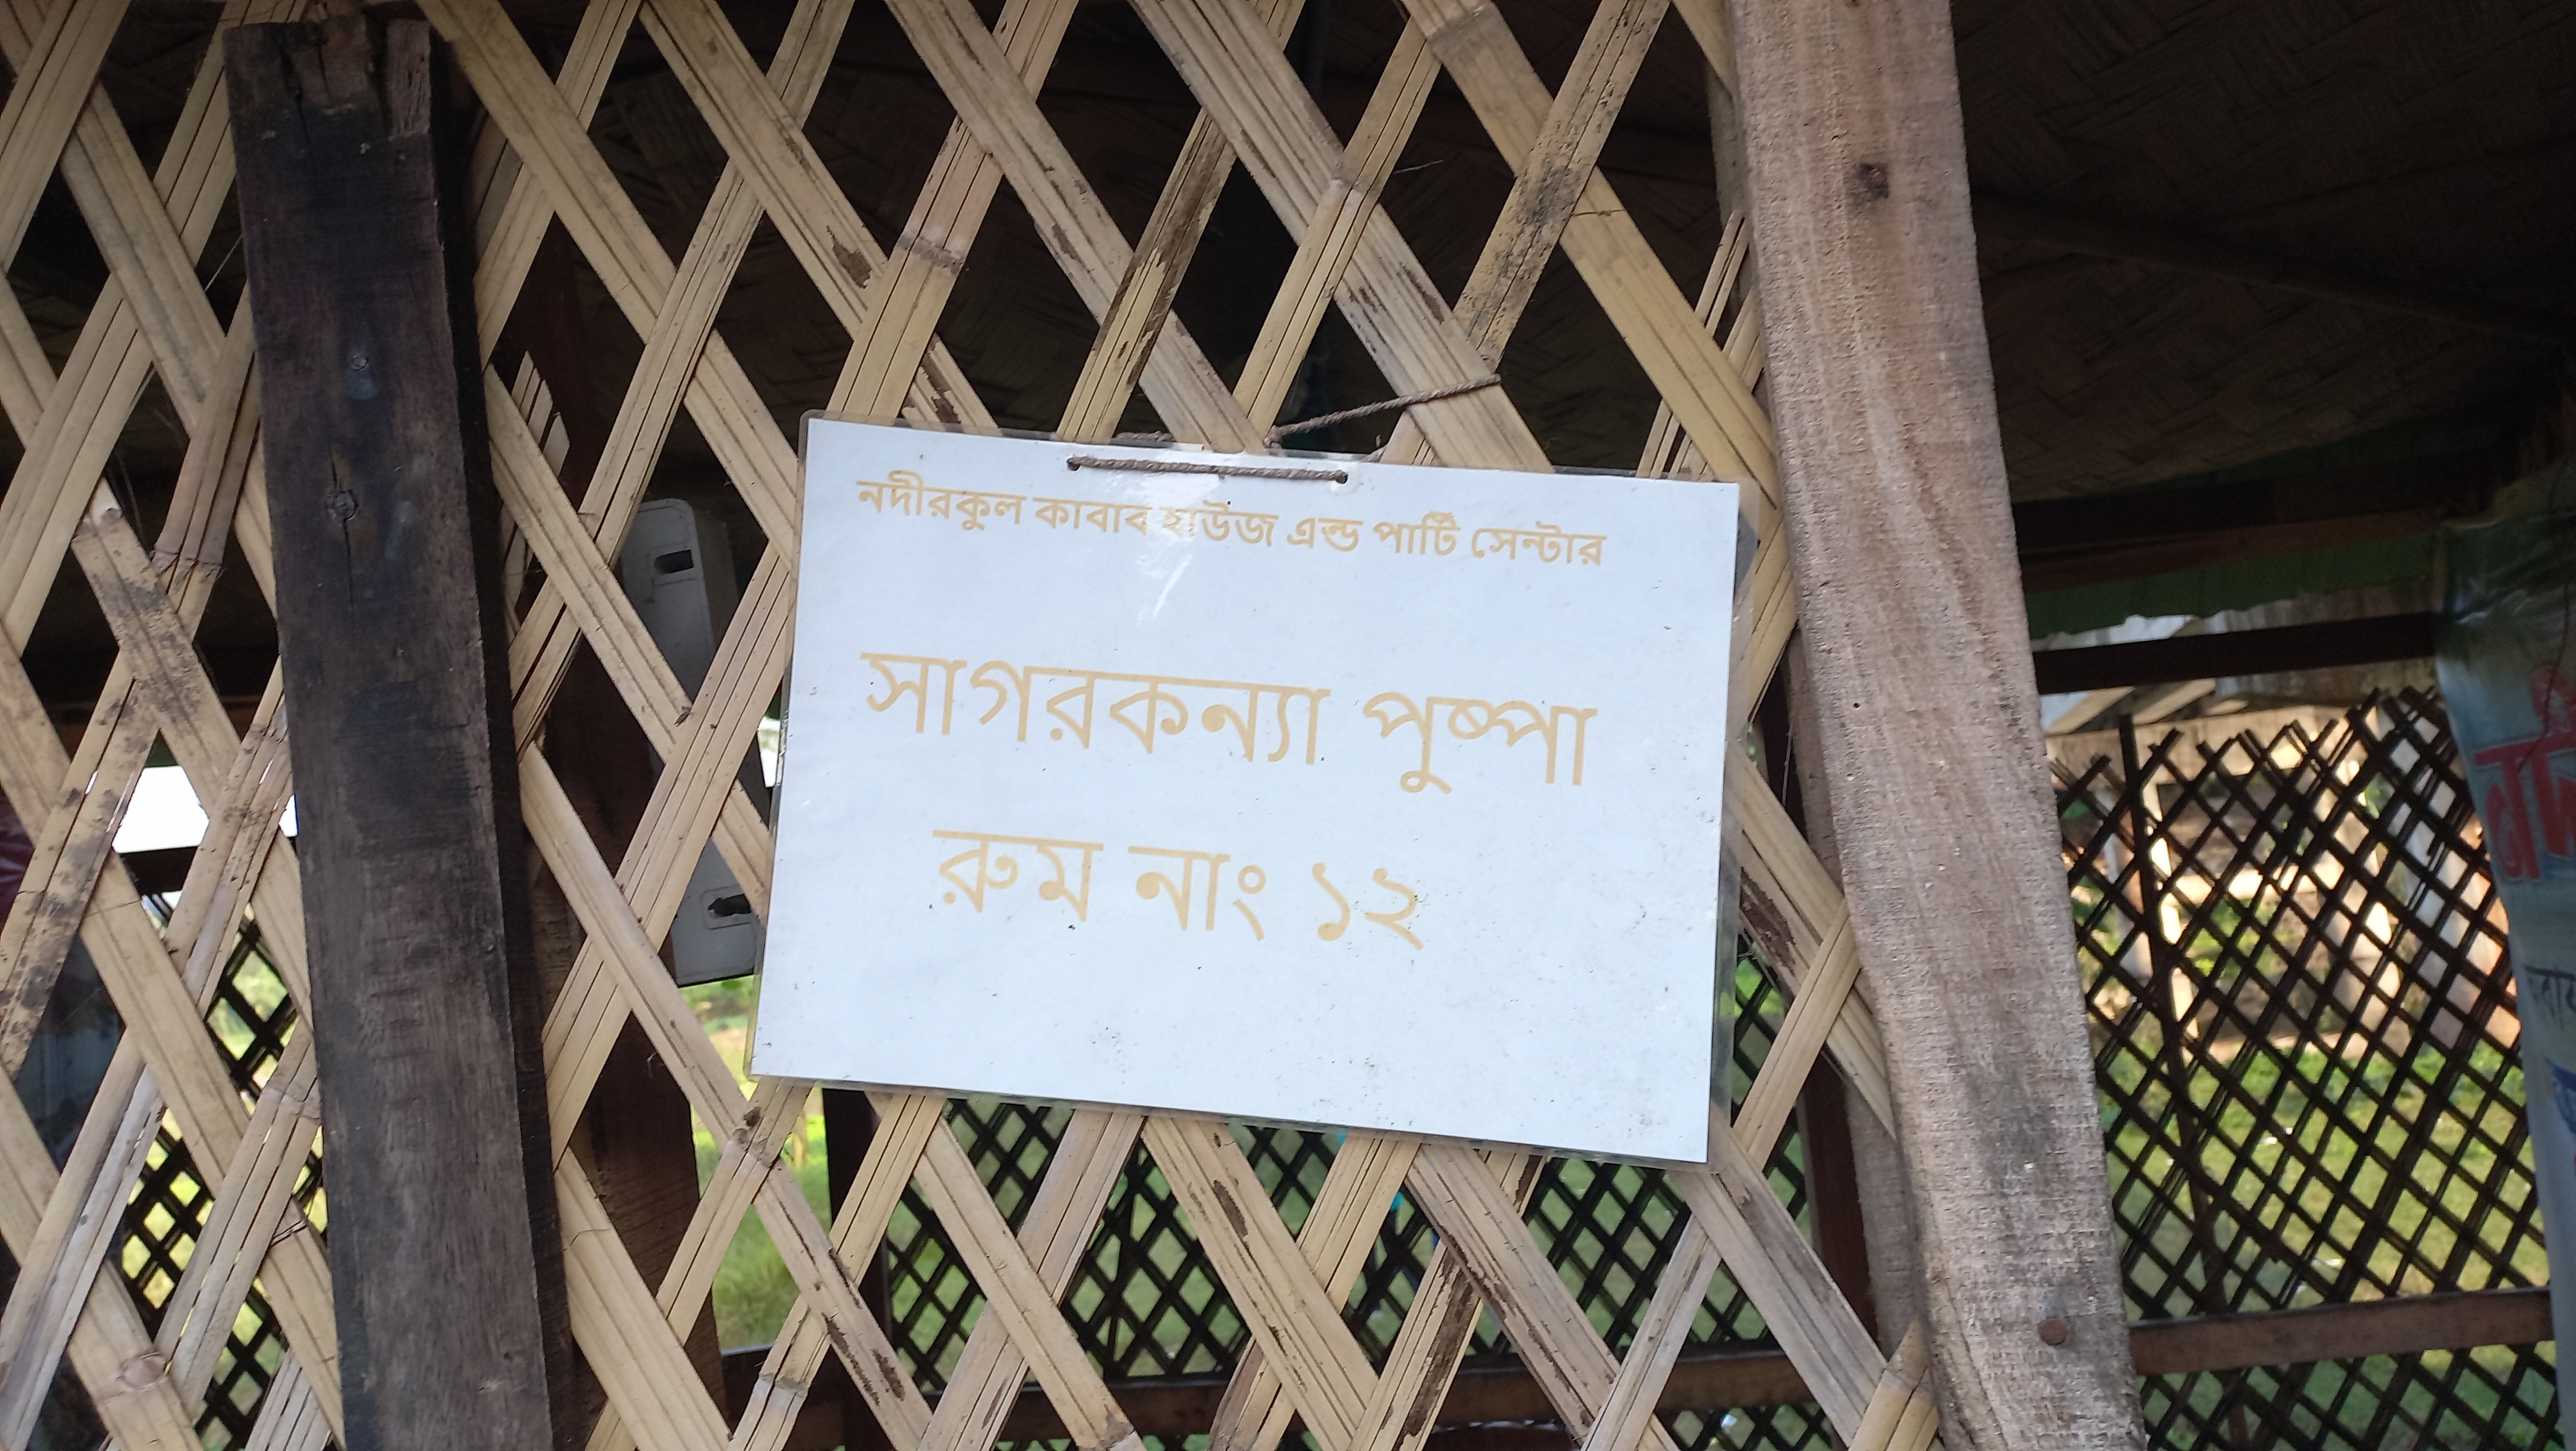 নদীরকুল কাবাব হাউজ এন্ড পার্টি সেন্টার
সাগরকন্যা পুষ্পা
রুম নাং ১২